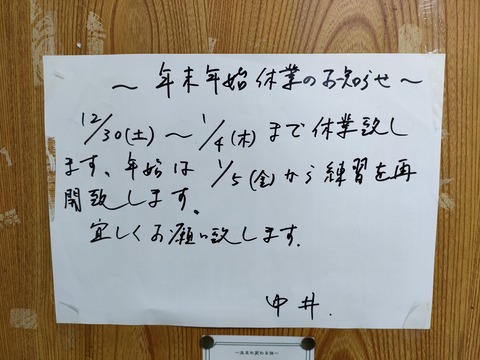 ～ 年末年始休業のお知らせ ～
12/30(土) ～ 1/4(木) まで休業致し
ます。年始は 1/5(金)から練習を再
開致します。
宜しくお願い致します.
中井.